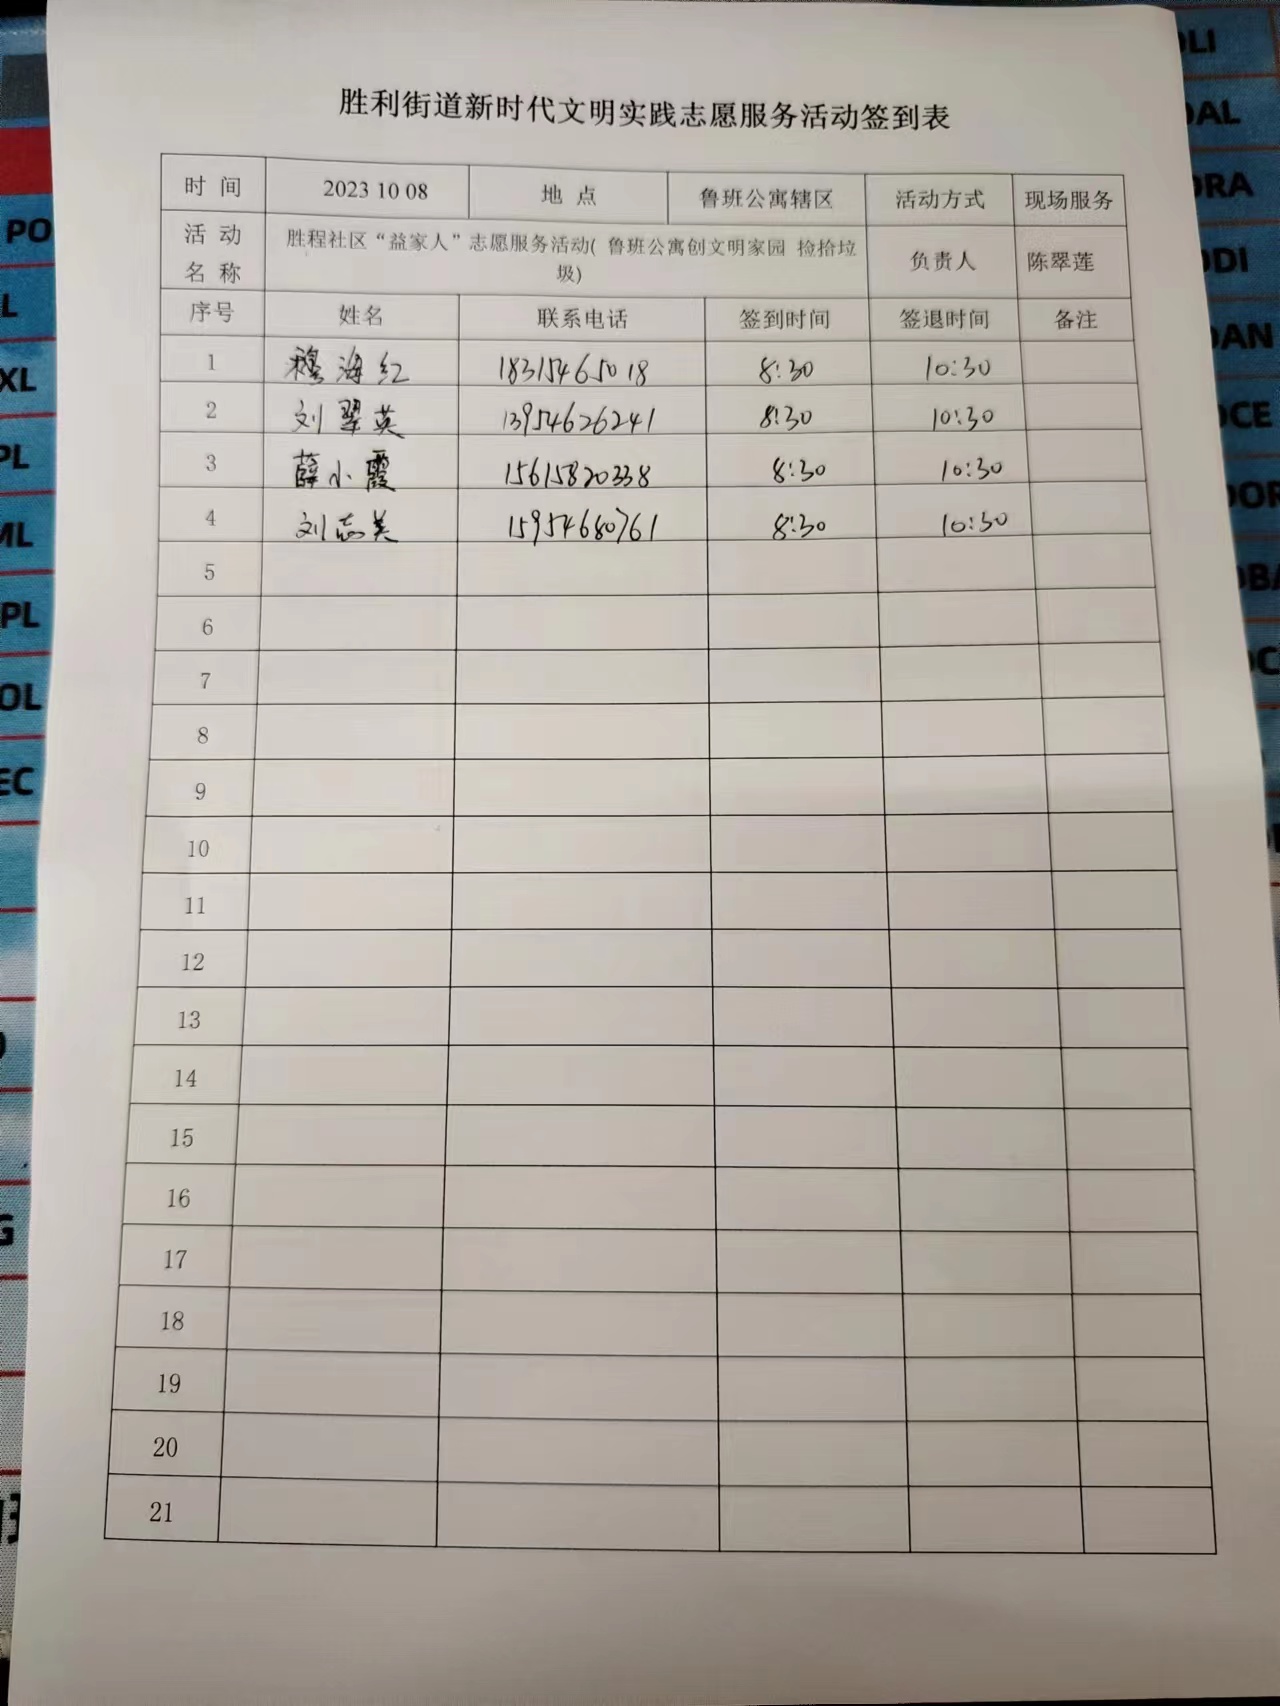 胜利街道新时代文明实践志愿服务活动签到表
时 间 2023 10 08 地 点 鲁班公寓辖区 活动方式 现场服务
活 动 名 称 胜程社区“益家人”志愿服务活动( 鲁班公寓创文明家园 捡拾垃圾) 负责人 陈翠莲
序号 姓名 联系电话 签到时间 签退时间 备注
1 穆海红 18315465018 8:30 10:30
2 刘翠英 13954626241 8:30 10:30
3 薛小霞 15615820338 8:30 10:30
4 刘志美 15954680761 8:30 10:30
5
6
7
8
9
10
11
12
13
14
15
16
17
18
19
20
21
PO
L
XL
PL
ML
PL
OL
EC
G
OLI
DAL
ORA
ODI
DAN
OCE
DOR
OBA